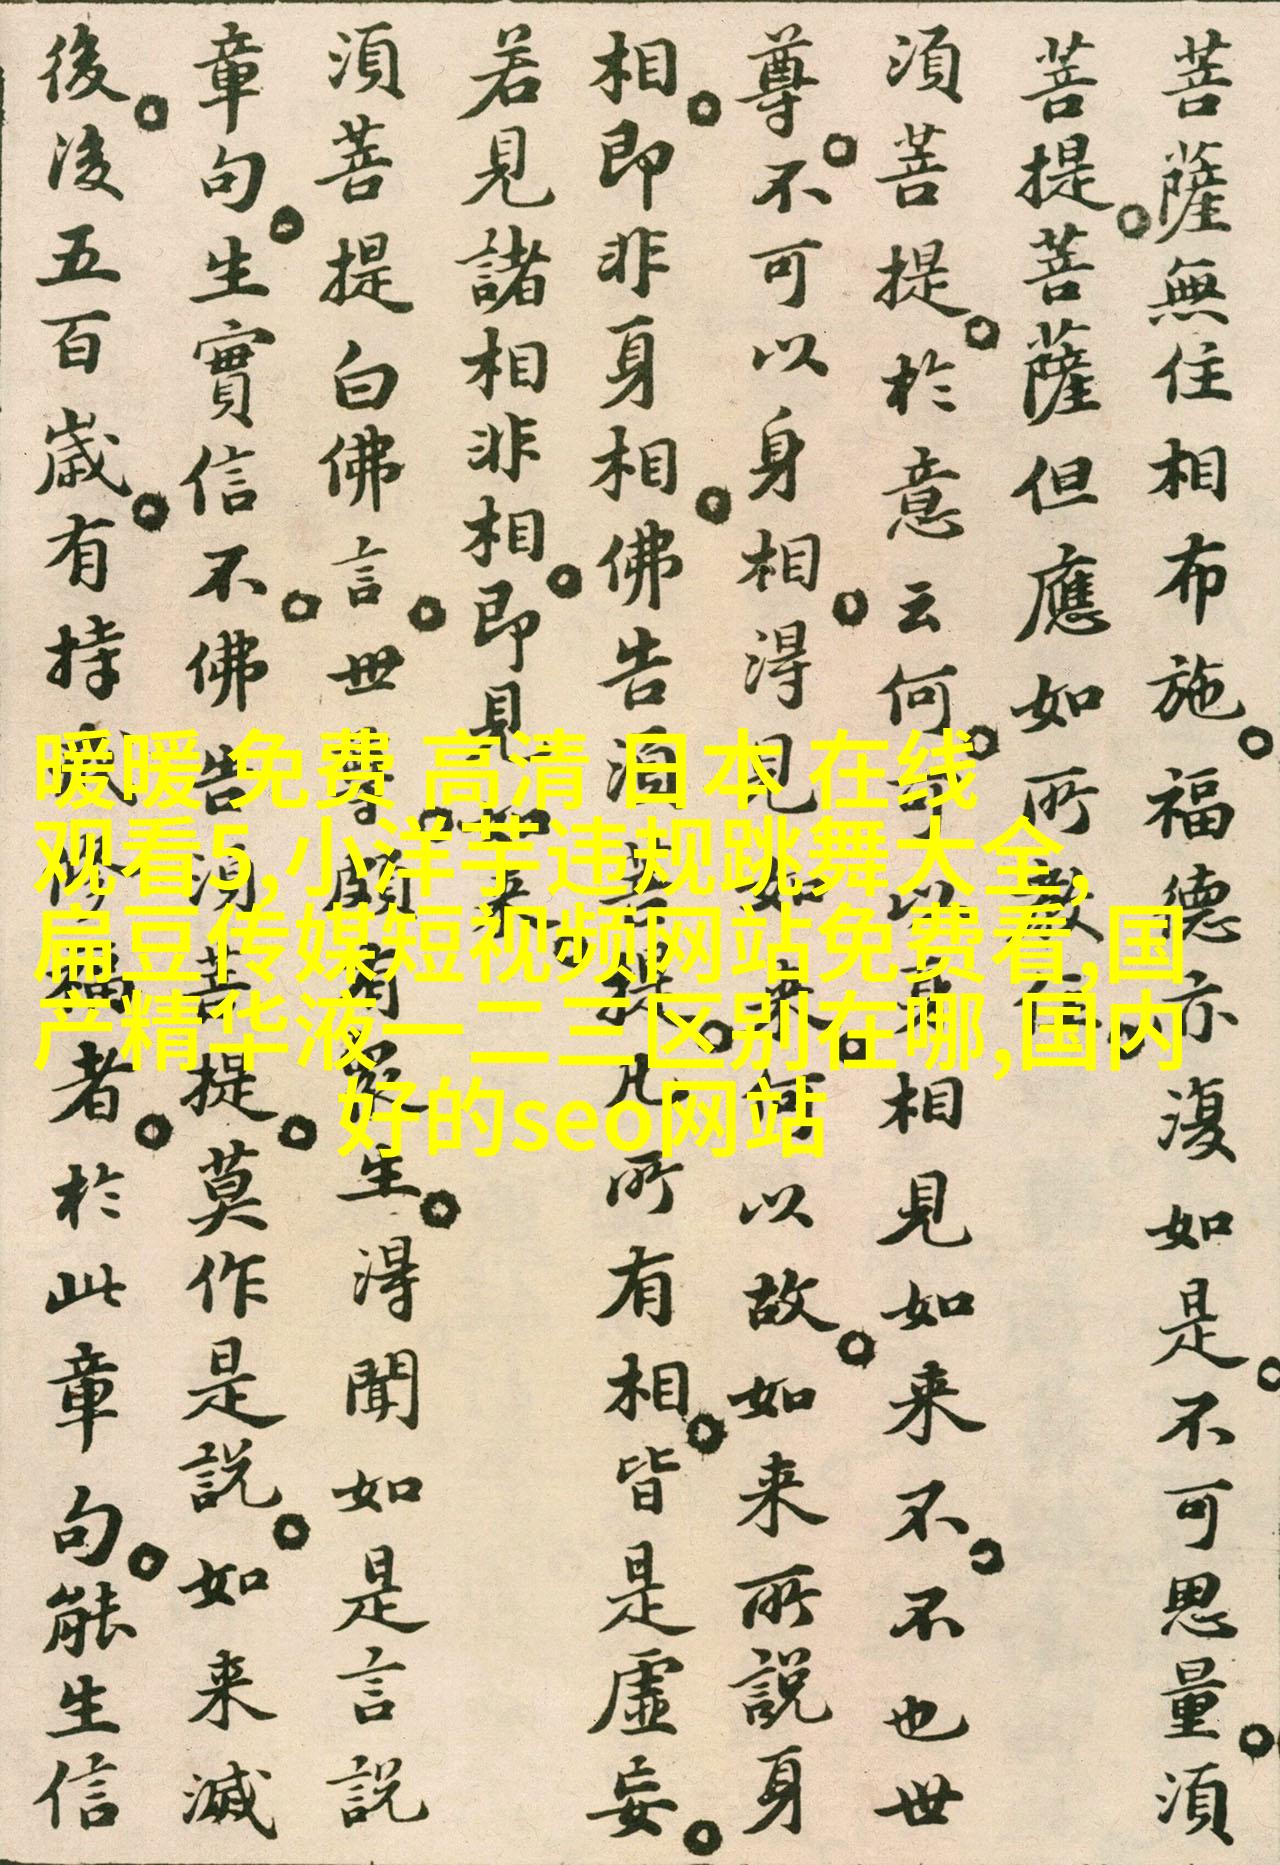 菩薩無住相布施。福德亦復如是。不可思量。須
菩提。菩薩但應如所教住。
須菩提。於意云何。可以身相見如来不。不也世
尊。不可以身相。得見如来。何以故。如来所說身
相。即非身相。佛告須菩提。凡所有相。皆是虛妄。
若見諸相非相。即見如来。
須菩提白佛言。世尊。頗有眾生。得聞如是言說
章句。生實信不。佛告須菩提。莫作是說。如来滅
後。後五百歲。有持戒修福者。於此章句。能生信
暖暖 免费 高清 日本 在线
观看5,小洋芋违规跳舞大全,
扁豆传媒短视频网站免费看,国
产精华液一二三区别在哪,国内
好的seo网站